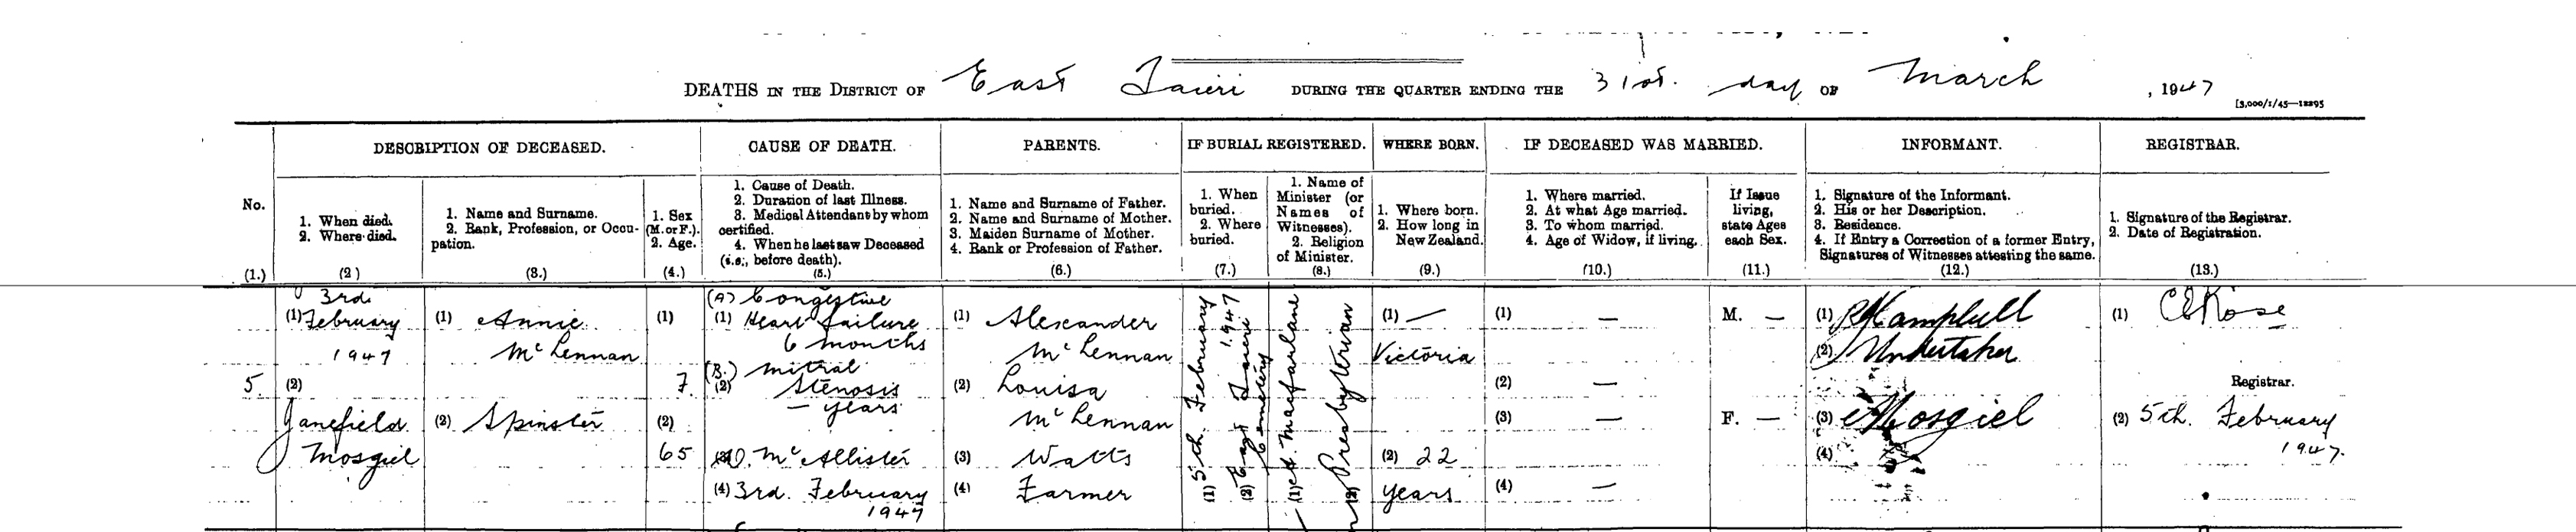 DEATHS IN THE DISTRICT OF East Taieri DURING THE QUARTER ENDING THE 31st. day OF March, 1947
[3,000/1/45—12295
No.
DESCRIPTION OF DECEASED.
CAUSE OF DEATH.
PARENTS.
IF BURIAL REGISTERED.
WHERE BORN.
IF DECEASED WAS MARRIED.
INFORMANT.
REGISTRAR.
1. When died.
2. Where died.
1. Name and Surname.
2. Rank, Profession, or Occu-
pation.
1. Sex
(M. or F.).
2. Age.
1. Cause of Death.
2. Duration of last Illness.
3. Medical Attendant by whom
certified.
4. When he last saw Deceased
(i.e., before death).
1. Name and Surname of Father.
2. Name and Surname of Mother.
3. Maiden Surname of Mother.
4. Rank or Profession of Father.
1. When
buried.
2. Where
buried.
1. Name of
Minister (or
Names of
Witnesses).
2. Religion
of Minister.
1. Where born.
2. How long in
New Zealand.
1. Where married.
2. At what Age married.
3. To whom married.
4. Age of Widow, if living.
If Issue
living,
state Ages
each Sex.
1. Signature of the Informant.
2. His or her Description.
3. Residence.
4. If Entry a Correction of a former Entry,
Signatures of Witnesses attesting the same.
1. Signature of the Registrar.
2. Date of Registration.
(1.)
(2)
(3.)
(4.)
(5.)
(6.)
(7.)
(8.)
(9.)
(10.)
(11.)
(12.)
(13.)
5.
3rd
(1) February
1947
(2)
Janefield
Mosgiel
(1) Annie
McLennan
(2) Spinster
(1)
7.
(2)
65
(A) Congestive
(1) Heart failure
6 months
(B.) mitral
(2) Stenosis
– years
D. McAllister
(4) 3rd. February
1947
(1) Alexander
McLennan
(2) Louisa
McLennan
(3) Watts
(4) Farmer
(1) 5th February
1947
(2) East Taieri
Cemetery
(1) Macfarlane
(2) Presbyterian
(1) —
Victoria
(2) 22
years
(1) —
(2) —
(3) —
(4) —
M. —
F. —
(1) Campbell
(2) Undertaker
(3) Mosgiel
(4)
(1) C E Rose
Registrar.
(2) 5th. February
1947.